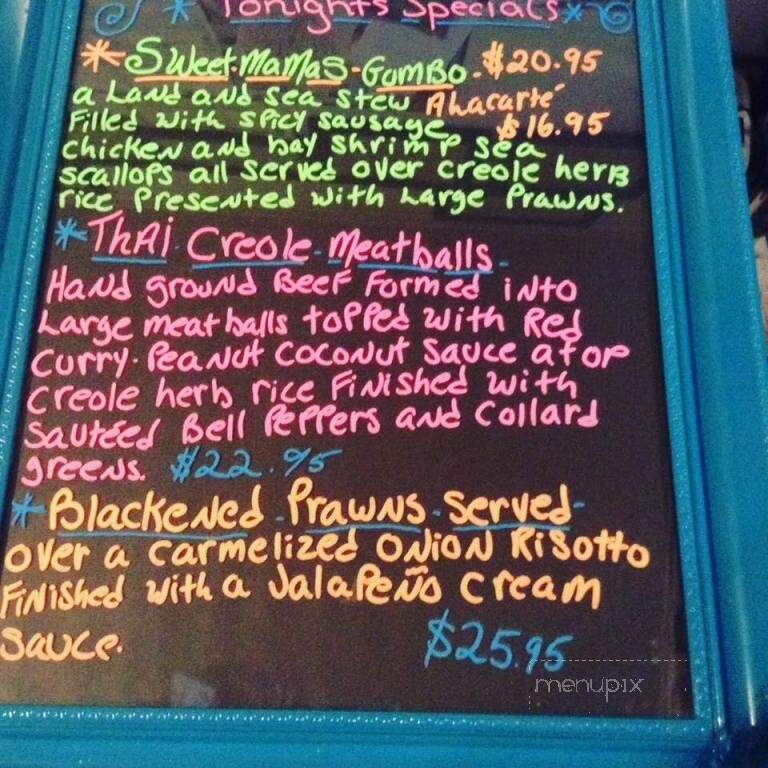 Tonights Specials
* Sweet-Mamas-Gumbo-$20.95
a Land and sea stew Alacarté
Filled with spicy sausage $16.95
chicken and bay shrimp sea
scallops all served over creole herb
rice Presented with Large Prawns.
* Thai Creole-Meatballs-
Hand ground Beef Formed into
Large meatballs topped with Red
curry-Peanut coconut sauce atop
creole herb rice Finished with
sautéed Bell Peppers and collard
greens. $22.95
* Blackened-Prawns-served-
over a carmelized onion Risotto
Finished with a JalaPeño cream
sauce. $25.95
menupix